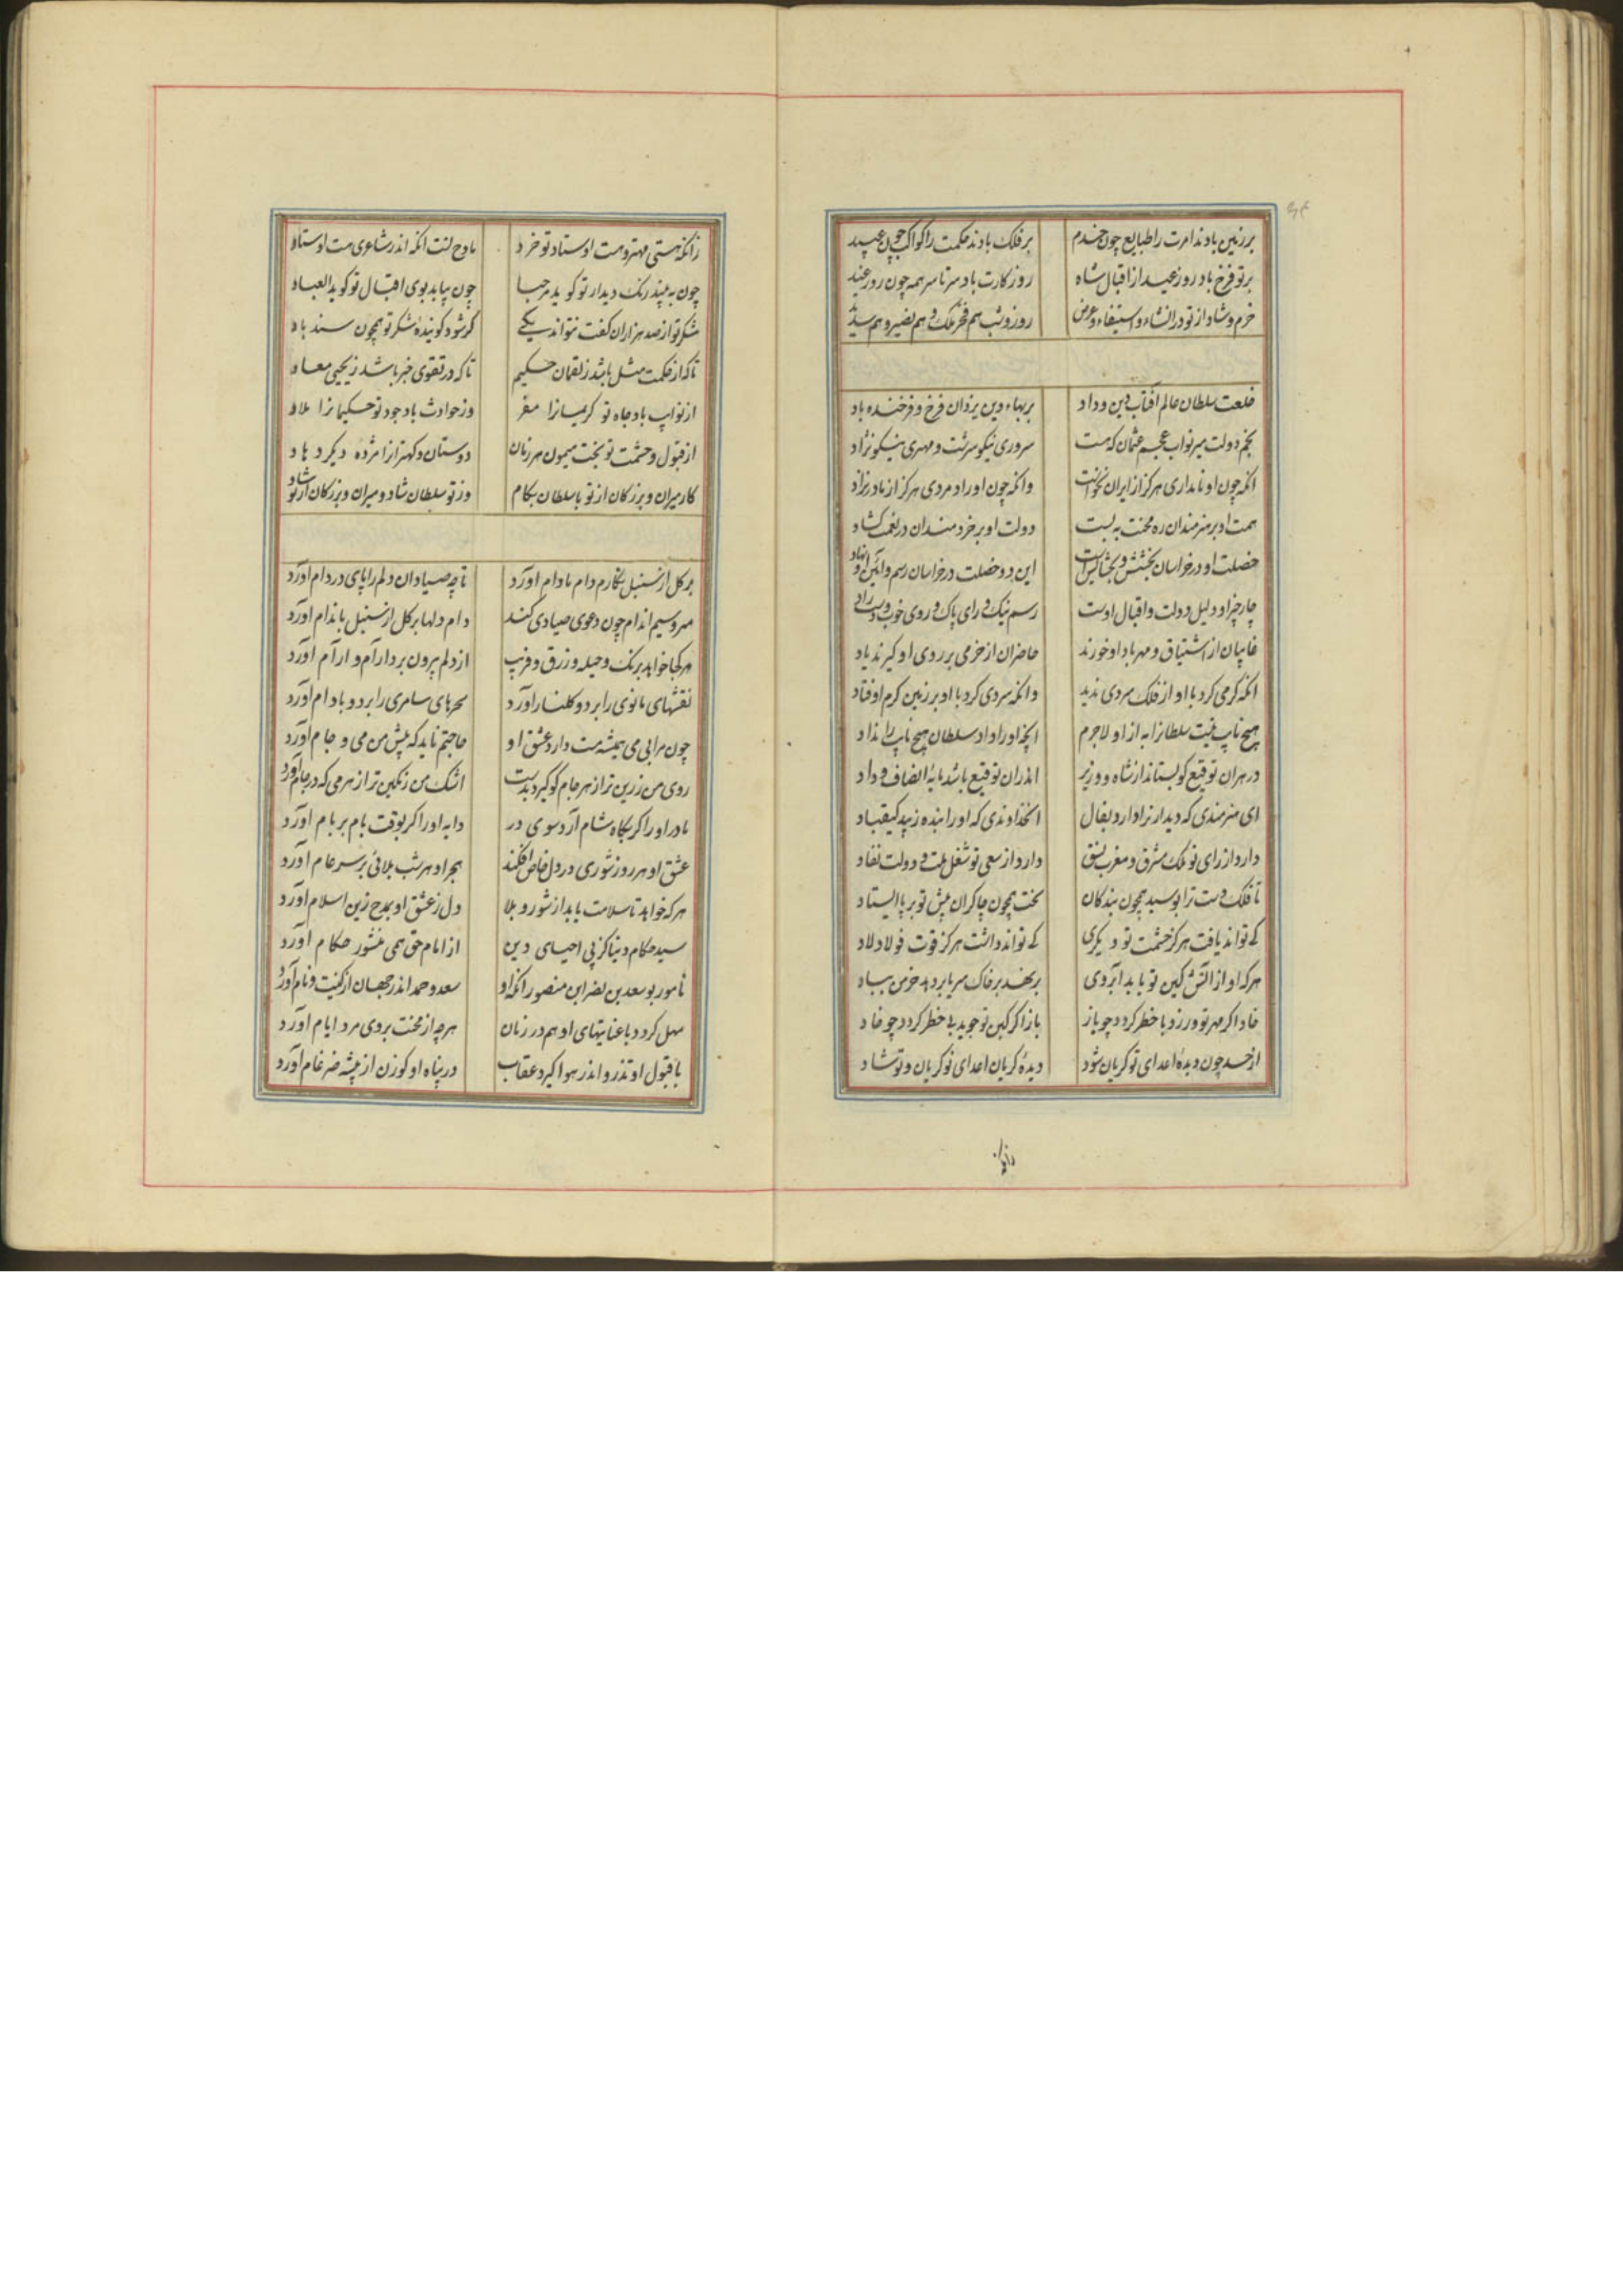 برزمین بادند امرت را طبایع چون خدم برفلک بادند حکمت را کواکب چون عبید
برتو فرخ باد روز عید از اقبال شاه روزکارت باد سرتاسر همه چون روز عید
خرم و شاد از تو در انشاء و استیفاء و عرض روز و شب هم فخر ملک و هم نصیر و هم سدید
خلعت سلطان عالم آفتاب دین و داد بر بهاء دین یزدان فرخ و فرخنده باد
نجم دولت میر نواب عجم عثمان که هست سروری نیکو سرشت و مهتری نیکو نژاد
انکه چون او نامداری هرکز از ایران نخواست وانکه چون او راد مردی هرکز از مادر نزاد
همت او بر هنرمندان ره محنت به بست دولت او بر خردمندان در نعمت کشاد
خصلت او در خراسان بخشش و بخشایش است این دو خصلت در خراسان رسم و آئین او نهاد
چار چیز او دلیل دولت و اقبال اوست رسم نیک و رای پاک و روی خوب و دست راد
غایبان از اشتیاق و مهر باد او خورند حاضران از خرمی بر روی او کیرند یاد
انکه کرمی کرد با او از فلک سردی ندید وانکه سردی کرد با او بر زمین کرم اوفتاد
هیچ نایب نیست سلطانرا به از او لاجرم انچه او را داد سلطان هیچ نایب را نداد
در هران توقیع کو بستاند از شاه و وزیر اندران توقیع باشد مایهٔ انصاف و داد
ای هنرمندی که دیدار ترا دارد بفال انخداوندی که او را بنده زیبد کیقباد
دارد از رای تو ملک مشرق و مغرب نسق دارد از سعی تو شغل ملت و دولت نفاد
تا فلک دست ترا بوسید همچون بندکان بخت همچون چاکران پیش تو بر پا ایستاد
کی تواند یافت هرکز حشمت تو دیکری کی تواند داشت هرکز قوت فولاد لاد
هرکه او از آتش کین تو یابد آبروی برنهد بر خاک سر یا بردهد خرمن بباد
خاد اکر مهر تو ورزد با خطر کردد چو باز باز اکر کین تو جوید بی خطر کردد چو خاد
از حسد چون دیدهٔ اعدای تو کریان شود دیدهٔ کریان اعدای تو کریان و تو شاد
زانکه
زانکه هستی مهتر و هست اوستاد تو خرد مادح تست انکه اندر شاعری هست اوستاد
چون به بیند رنک دیدار تو کوید مرحبا چون بیابد بوی اقبال تو کوید العباد
شکر تو از صد هزاران کفت نتواند یکی کر شود کوینده شکر تو همچون سندباد
تا که از حکمت مثل باشد ز لقمان حکیم تا که در تقوی خبر باشد ز یحیی معاد
از نوایب باد جاه تو کریمانرا مفر وز حوادث باد جود تو حکیمانرا ملاد
از قبول و حشمت تو بخت میمون هر زمان دوستان و کهترانرا مژده دیکر دهاد
کار میران و بزرکان از تو با سلطان بکام وز تو سلطان شاد و میران و بزرکان از تو شاد
بر کل از سنبل نکارم دام مادام اورد تا چه صیادان دلم را پای در دام اورد
سرو سیم اندام چون دعوی صیادی کند دام دلها بر کل از سنبل باندام اورد
هرکجا خواهد برنک و حیله و زرق و فریب از دلم بیرون برد آرام و ارآم اورد
نقشهای مانوی را برد و کلنار اورد سحرهای سامری را برد و بادام اورد
چون مرا بی می همیشه مست دارد عشق او حاجتم ناید که پیش من می و جام اورد
روی من زرین تر از هر جام کو کیرد بدست اشک من رنکین تر از هر می که در جام اورد
مادر او را کر بکاه شام آرد سوی در دایه او را کر بوقت بام بر بام اورد
عشق او هر روز شوری در دل خاص افکند هجر او هر شب بلائی بر سر عام اورد
هرکه خواهد تا سلامت یابد از شور و بلا دل ز عشق او بمدح زین اسلام اورد
سید حکام دنیا کز پی احیای دین از امام حق همی منشور حکام اورد
نامور بوسعد بن نصر ابن منصور انکه او سعد و حمد اندر جهان از کنیت و نام اورد
سهل کردد با عنایتهای او هم در زمان هرچه از محنت بروی مرد ایام اورد
با قبول او تذرو اندر هوا کیرد عقاب در پناه او کوزن از بیشه ضرغام اورد